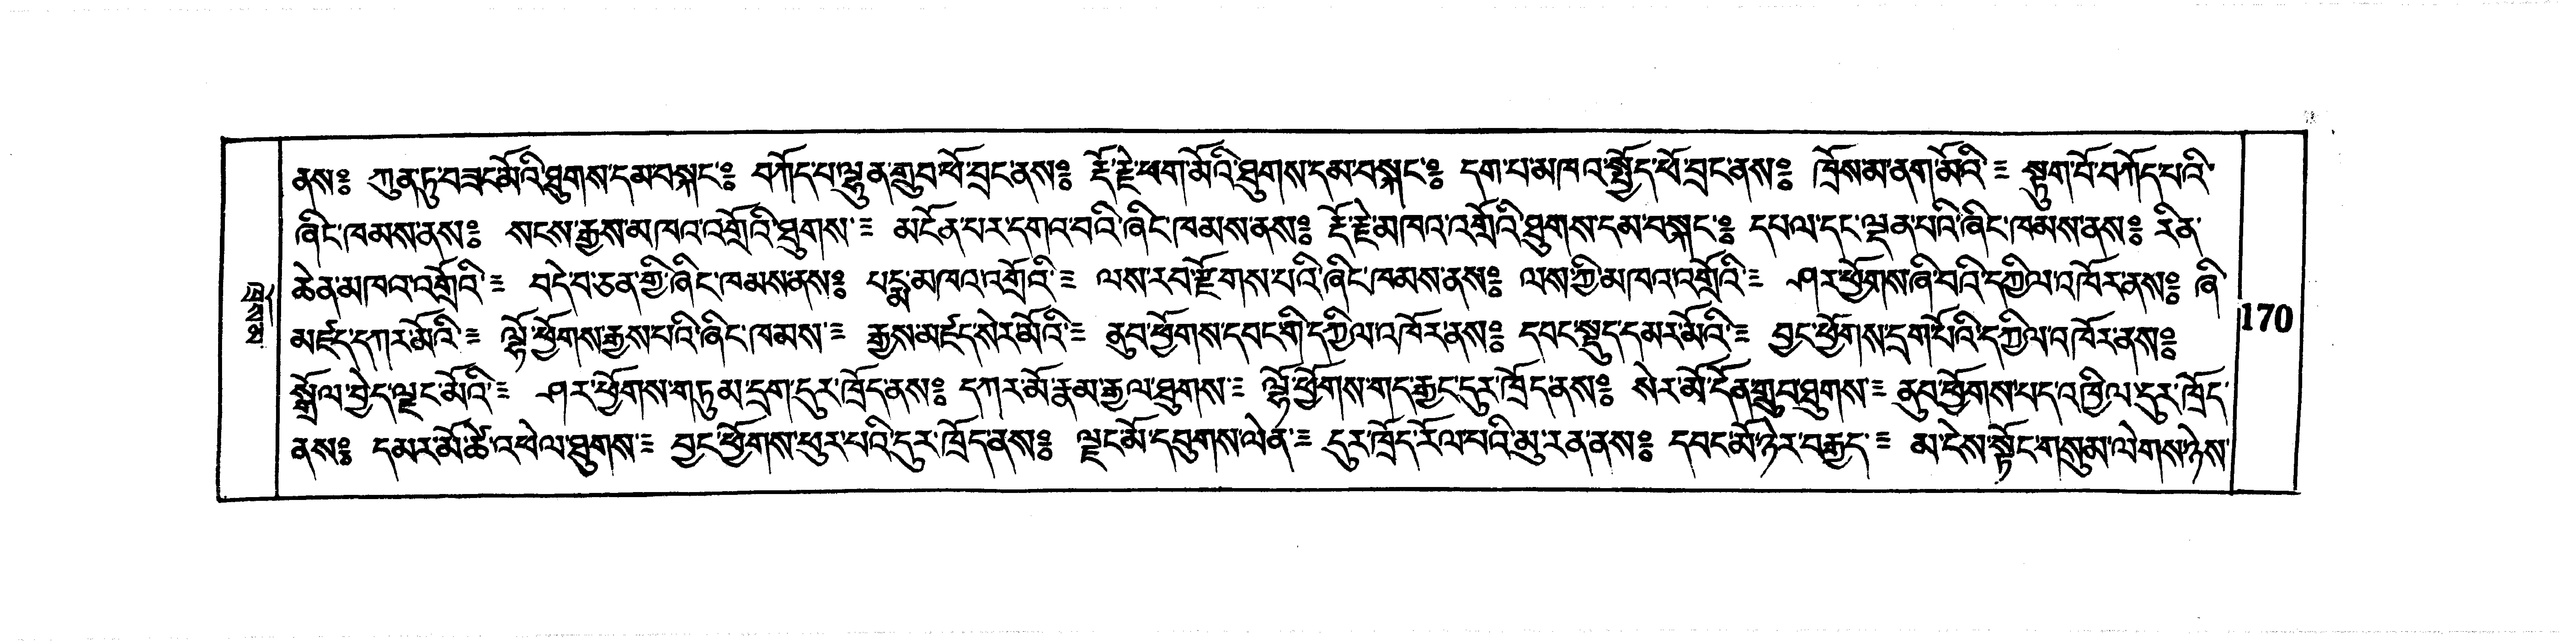 ནས༔ ཀུན་ཏུ་བཟང་མོའི་ཐུགས་དམ་བསྐང་༔ བཀོད་པ་ལྷུན་གྲུབ་ཕོ་བྲང་ནས༔ རྡོ་རྗེ་ཕག་མོའི་ཐུགས་དམ་བསྐང་༔ དག་པ་མཁའ་སྤྱོད་ཕོ་བྲང་ནས༔ ཁྲོས་མ་ནག་མོའི་ ༔ སྟུག་པོ་བཀོད་པའི་
ཞིང་ཁམས་ནས༔ སངས་རྒྱས་མཁའ་འགྲོའི་ཐུགས་ ༔ མངོན་པར་དགའ་བའི་ཞིང་ཁམས་ནས༔ རྡོ་རྗེ་མཁའ་འགྲོའི་ཐུགས་དམ་བསྐང་༔ དཔལ་དང་ལྡན་པའི་ཞིང་ཁམས་ནས༔ རིན་
ཆེན་མཁའ་འགྲོའི་ ༔ བདེ་བ་ཅན་གྱི་ཞིང་ཁམས་ནས༔ པདྨ་མཁའ་འགྲོའི་ ༔ ལས་རབ་རྫོགས་པའི་ཞིང་ཁམས་ནས༔ ལས་ཀྱི་མཁའ་འགྲོའི་ ༔ ཤར་ཕྱོགས་ཞི་བའི་དཀྱིལ་འཁོར་ནས༔ ཞི་
མཛད་དཀར་མོའི་ ༔ ལྷོ་ཕྱོགས་རྒྱས་པའི་ཞིང་ཁམས་ ༔ རྒྱས་མཛད་སེར་མོའི་ ༔ ནུབ་ཕྱོགས་དབང་གི་དཀྱིལ་འཁོར་ནས༔ དབང་སྡུད་དམར་མོའི་ ༔ བྱང་ཕྱོགས་དྲག་པོའི་དཀྱིལ་འཁོར་ནས༔
སྒྲོལ་བྱེད་ལྗང་མོའི་ ༔ ཤར་ཕྱོགས་གཏུམ་དྲག་དུར་ཁྲོད་ནས༔ དཀར་མོ་རྣམ་རྒྱལ་ཐུགས་ ༔ ལྷོ་ཕྱོགས་གད་རྒྱང་དུར་ཁྲོད་ནས༔ སེར་མོ་དོན་གྲུབ་ཐུགས་ ༔ ནུབ་ཕྱོགས་པད་འཁྱིལ་དུར་ཁྲོད་
ནས༔ དམར་མོ་ཚེ་འཕེལ་ཐུགས་ ༔ བྱང་ཕྱོགས་ཕུར་པའི་དུར་ཁྲོད་ནས༔ ལྗང་མོ་དབུགས་ལེན་ ༔ དུར་ཁྲོད་རོལ་པའི་མུ་རན་ནས༔ དབང་མོ་ཉེར་བརྒྱད་ ༔ མ་ངེས་སྟོང་གསུམ་ལེགས་ཉེས་
170